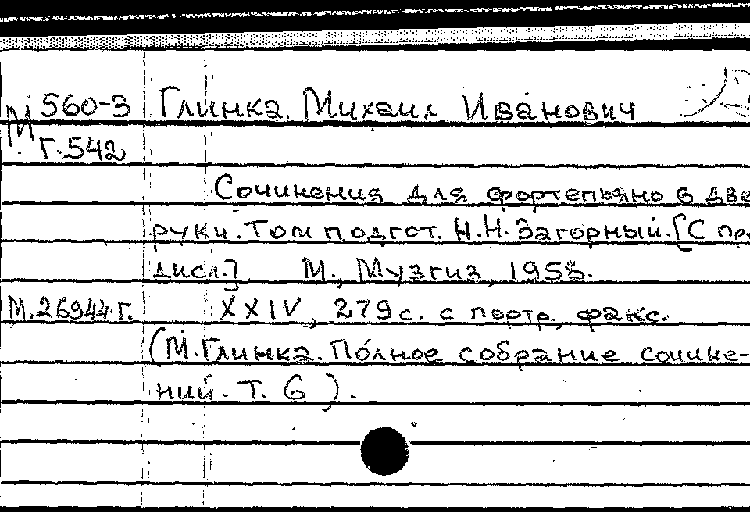 М 560-3 Глинка, Михаил Иванович
Г-542
Сочинения для фортепьяно в две
руки. Том подгот. Н.Н. Загорный. [С пре
дисл.] М., Музгиз, 1958.
М.26944 г. XXIV, 279 с. с портр., факс.
(М. Глинка. Полное собрание сочине-
ний. Т. 6).